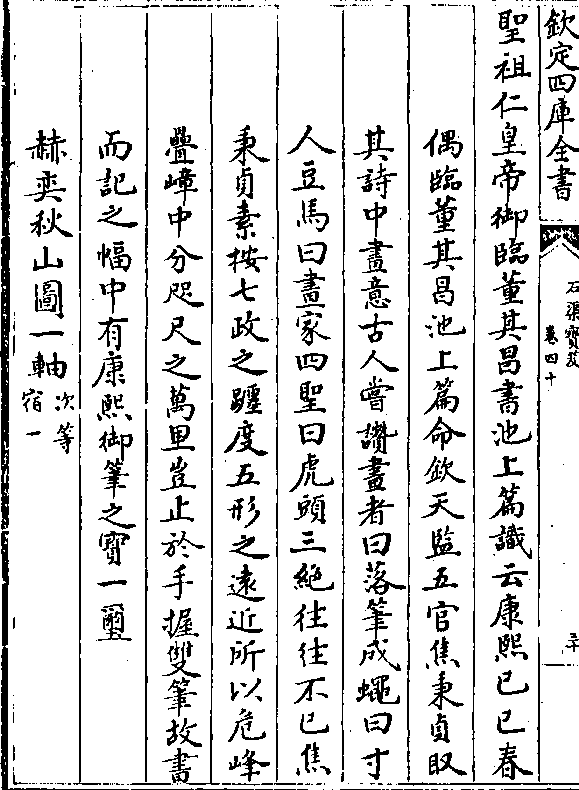 欽定四庫全書
石渠寶笈
卷四十
三十
聖祖仁皇帝御臨董其昌書池上篇識云康熙己巳春
偶臨董其昌池上篇命欽天監五官焦秉貞取
其詩中畫意古人嘗讚畫者曰落筆成蠅曰寸
人豆馬曰畫家四聖曰虎頭三絶往往不已焦
秉貞素按七政之躔度五形之遠近所以危峰
疊嶂中分咫尺之萬里豈止於手握雙筆故書
而記之幅中有康熙御筆之寶一璽
赫奕秋山圖一軸次等
宿一